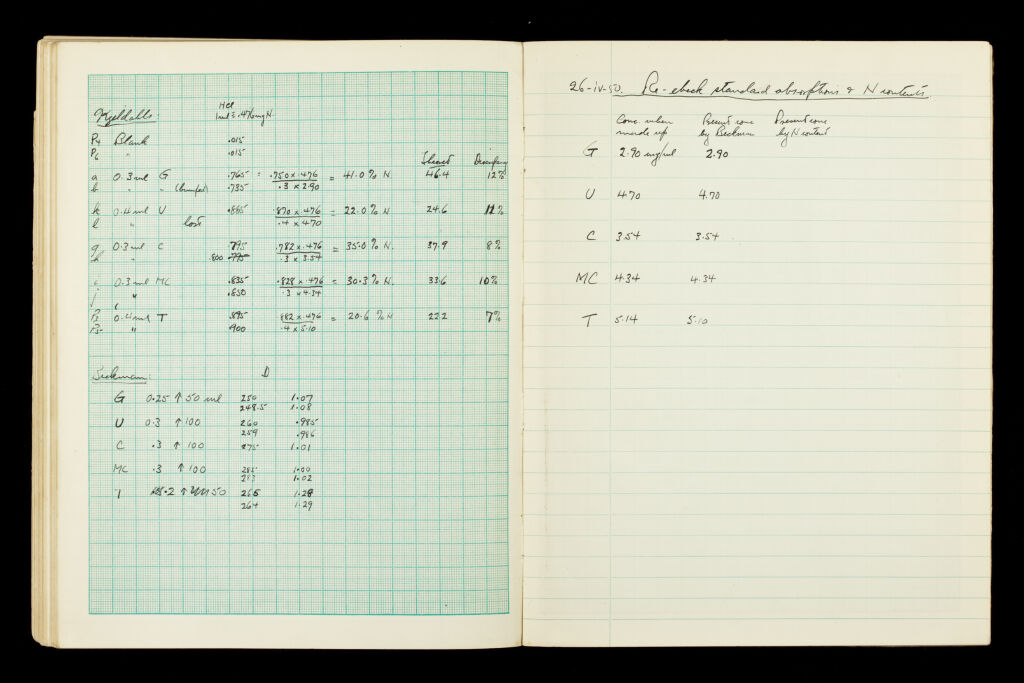 HCl
Kjeldahls. 1ml ≡ .476mg N.
P4 Blank .015
P6 " .015
Theoret Discrepancy
a 0.3 ml G .765 = .750 x .476 / .3 x 2.90 = 41.0 % N 46.4 12%
b " " (bumped) .735
k 0.4 ml U .885 .870 x .476 / .4 x 4.70 = 22.0 % N 24.6 11%
l " lost
g 0.3 ml C .795 .782 x .476 / .3 x 3.54 = 35.0 % N. 37.9 8%
h " .800 .795
i 0.3 ml MC .835 .828 x .476 / .3 x 4.34 = 30.3 % N. 33.6 10%
j " .850
0.4 ml T .895 .882 x .476 / .4 x 5.10 = 20.6 % N 22.2 7%
" .900
Beckman: D
G 0.25 ↑ 50 ml 250 1.07
248.5 1.08
U 0.3 ↑ 100 260 .985
259 .986
C .3 ↑ 100 275 1.01
MC .3 ↑ 100 285 1.00
287 1.02
T .2 ↑ 50 265 1.28
264 1.29
26-iv-50. Re-check standard absorptions & N contents.
Conc. when made up Present conc by Beckman Present conc by N content
G 2.90 mg/ml 2.90
U 4.70 4.70
C 3.54 3.54
MC 4.34 4.34
T 5.14 5.10